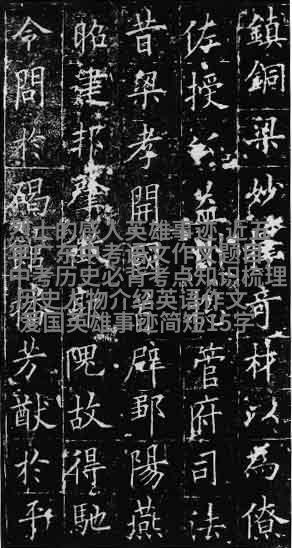 鎮銅梁妙奇材以為僚
佐授益管府司法
昔梁孝開國辟鄒陽燕
昭建邦肇隗故得馳
令問於碣芳猷於平
烈士的感人英雄事迹,近五
年广东中考语文作文题目,
中考历史必背考点知识梳理
历史人物介绍英语作文,
爱国英雄事迹简短15字